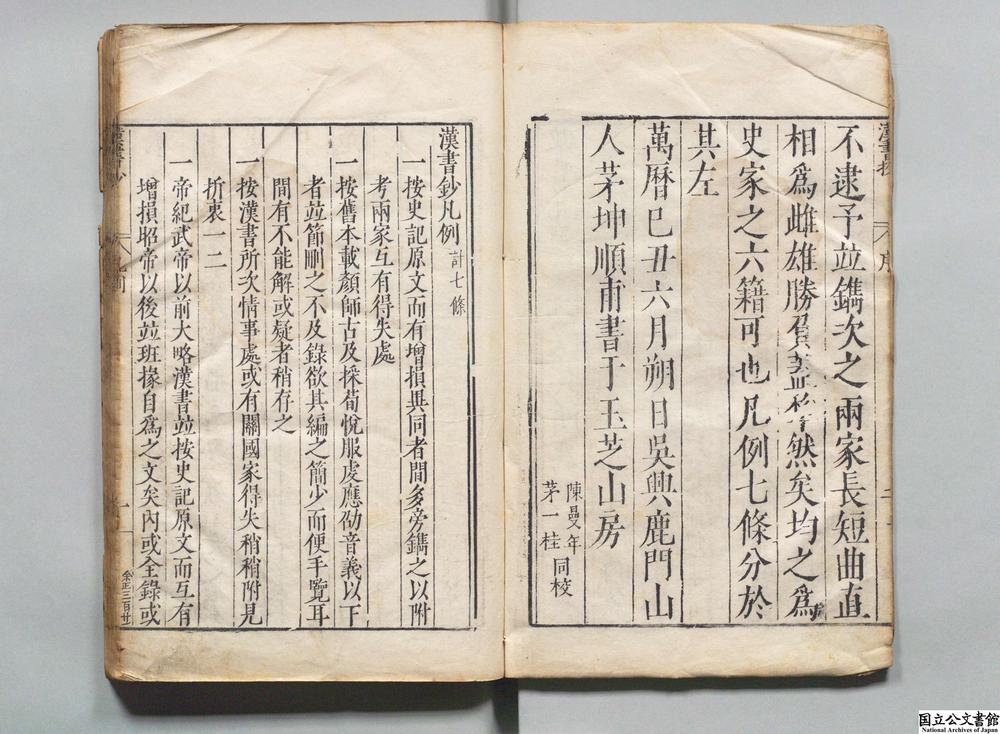 不逮予並鐫次之兩家長短曲直
相爲雌雄勝負
然矣均之爲
史家之六籍可也凡例七條分於
其左
萬曆巳丑六月朔日吳興鹿門山
人茅坤順甫書于玉芝山房
陳曼年
茅一桂
同校
漢書鈔凡例
計七條
一按史記原文而有增損異同者間多旁鐫之以附
考兩家互有得失處
一按舊本載顏師古及採荀悅服虔應劭音義以下
者並節刪之不及錄欲其編之簡少而便手覽耳
間有不能解或疑者稍存之
一按漢書所次情事處或有關國家得失稍稍附見
折衷一二
一帝紀武帝以前大略漢書並按史記原文而互有
增損昭帝以後並班掾自爲之文矣內或全錄或
国立公文書館
National Archives of Japan